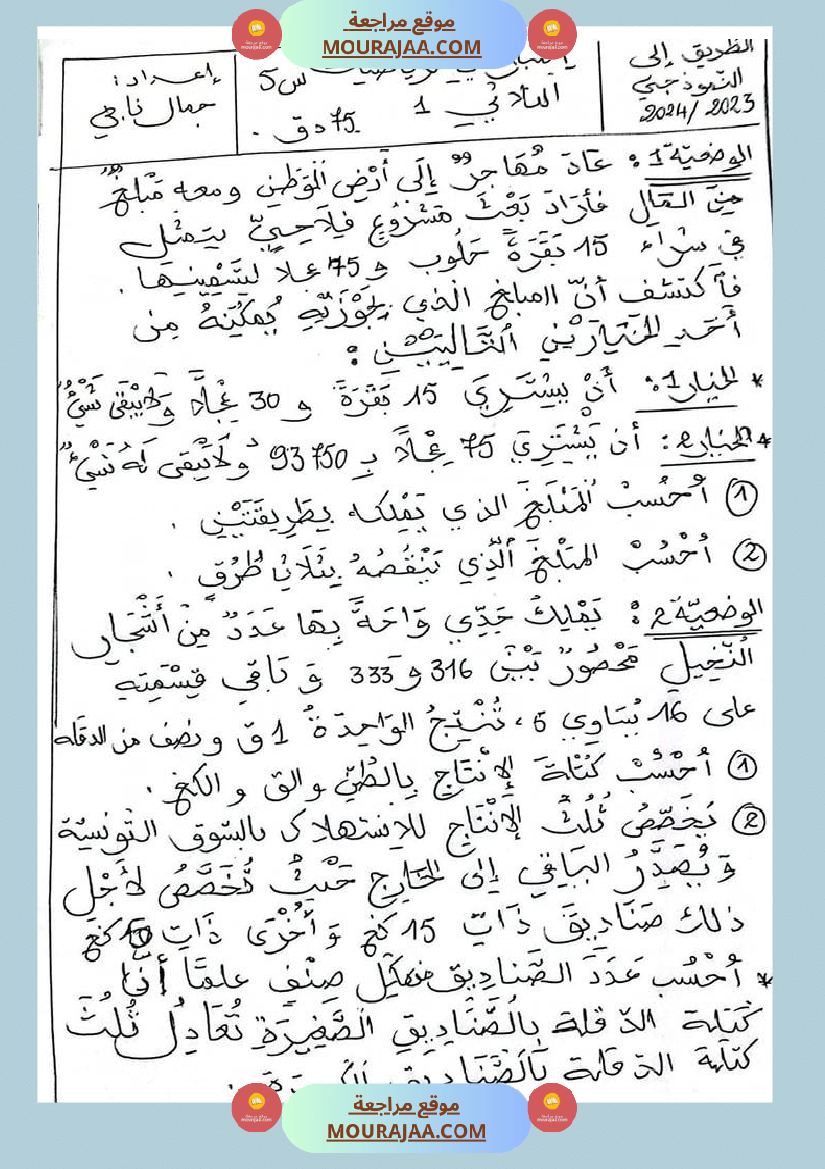 موقع مراجعة
MOURAJAA.COM
الطريق إلى
النموذجي
2023 / 2024
س5
الثلاثي 1
75 دق.
إعداد:
جمال ناجي
الوضعيّة 1: عَادَ مُهَاجِرٌ إِلَى أَرْضِ الوَطَنِ ومعه مَبْلَغٌ
مِنَ المَالِ فَأَرَادَ بَعْثَ مَشْرُوعٍ فِلَاحِيٍّ يتمثل
في شراء 15 بَقَرَةً حَلُوب و 75 عجلا لِتَسْمِينِهَا.
فاكتشف أنّ المبلغ الذي بِحَوْزَتِهِ يُمَكِّنُهُ مِن
أَحَدِ الخِيَارَيْنِ التَّالِيَيْنِ:
* الخيار 1: أَنْ يَشْتَرِيَ 15 بَقَرَةً و 30 عِجْلًا وَلَا يَبْقَى شَيْءٌ
* الخيار 2: أن يَشْتَرِيَ 75 عِجْلًا بِـ 93750 وَلَا يَبْقَى لَهُ شَيْءٌ
① أَحْسُبُ المَبْلَغَ الذي يَمْلِكه بِطَرِيقَتَيْنِ.
② أَحْسُبُ المَبْلَغَ الَّذِي يَنْقُصُهُ بِثَلَاثِ طُرُقٍ.
الوضعيّة 2: يَمْلِكُ جَدِّي وَاحَةً بِهَا عَدَدٌ مِنْ أَشْجَارِ
النَّخِيلِ مَحْصُورٌ بَيْنَ 316 و 333 وَ بَاقِي قِسْمَتِهِ
على 16 يُسَاوِي 6، تُنْتِجُ الوَاحِدَةُ 1 ق و نصف من الدقلة
① أَحْسُبُ كُتْلَةَ الإِنْتَاجِ بِالطُّنِّ و الق و الكغ.
② يُخَصَّصُ ثُلُثُ الإِنْتَاجِ للاستهلاك بالسّوق التّونسيّة
وَ يُصَدَّرُ البَاقِي إلى الخَارِجِ حَيْثُ تُخَصَّصُ لأَجْلِ
ذلك صَنَادِيقَ ذَاتَ 15 كغ وَ أُخْرَى ذَاتَ 10 كغ
* أَحْسُب عَدَدَ الصَّنادِيق مِن كُلِّ صِنْفٍ علمًا أَنَّ
كُتْلَةَ الدّقلة بِالصَّنَادِيقِ الصَّغِيرَةِ تُعَادِلُ ثُلُثَ
كتلة الدّقلة بالصَّنَادِيقِ
موقع مراجعة
MOURAJAA.COM